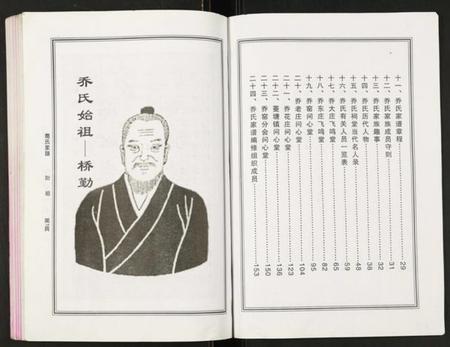 十一、乔氏家谱章程……29
十二、乔氏家族成员守则……31
十三、乔氏家族趣事……32
十四、乔氏历代人物……38
十五、乔氏祠堂当代名人录……48
十六、乔氏有关人员一览表……59
十七、乔大庄飞鸣堂……65
十八、乔东庄飞鸣堂……82
十九、乔窑问心堂……95
二十、乔老庄问心堂……104
二十一、乔花庄问心堂……123
二十二、蔓塘镇问心堂……136
二十三、乔窑分会问心堂……150
二十四、乔氏家谱编修组织成员……153
乔氏始祖 桥勤
喬氏家譜
始祖